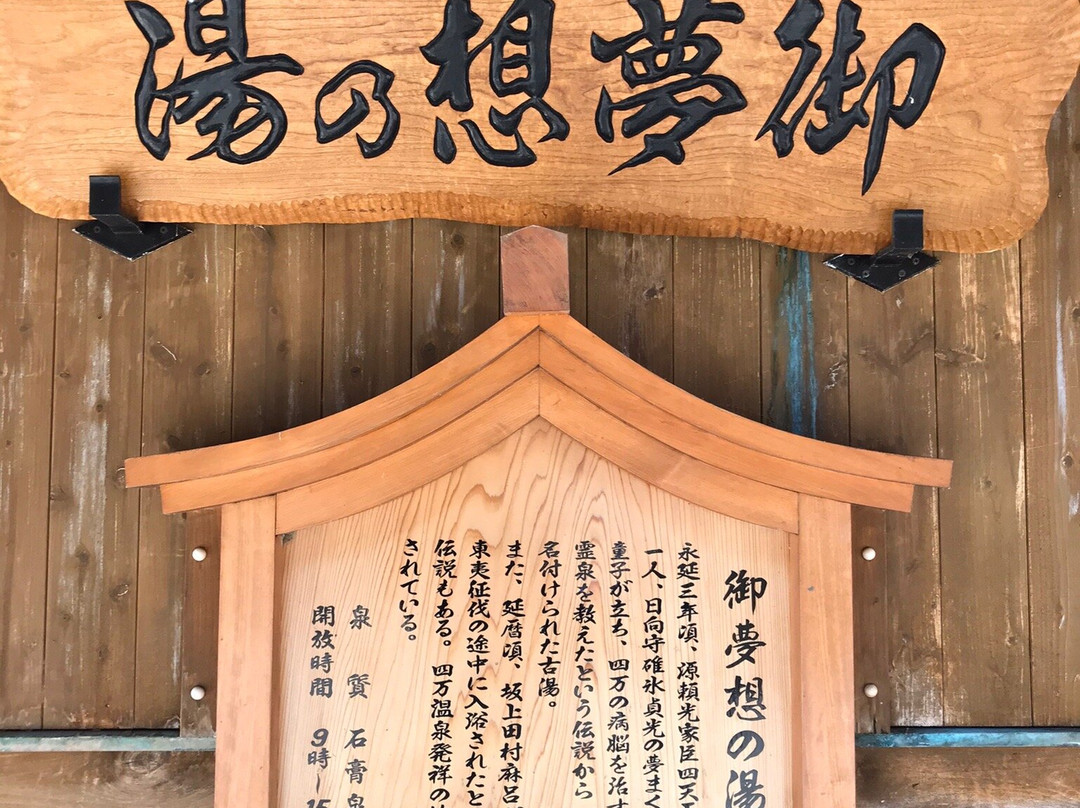 御夢想の湯
御夢想の湯
永延三年頃、源頼光家臣四天
一人、日向守碓氷貞光の夢まく
童子が立ち、四万の病脳を治す
霊泉を教えたという伝説から
名付けられた古湯。
また、延暦頃、坂上田村麻呂
東夷征伐の途中に入浴されたと
伝説もある。四万温泉発祥の
されている。
泉質 石膏泉
開放時間 9時〜15